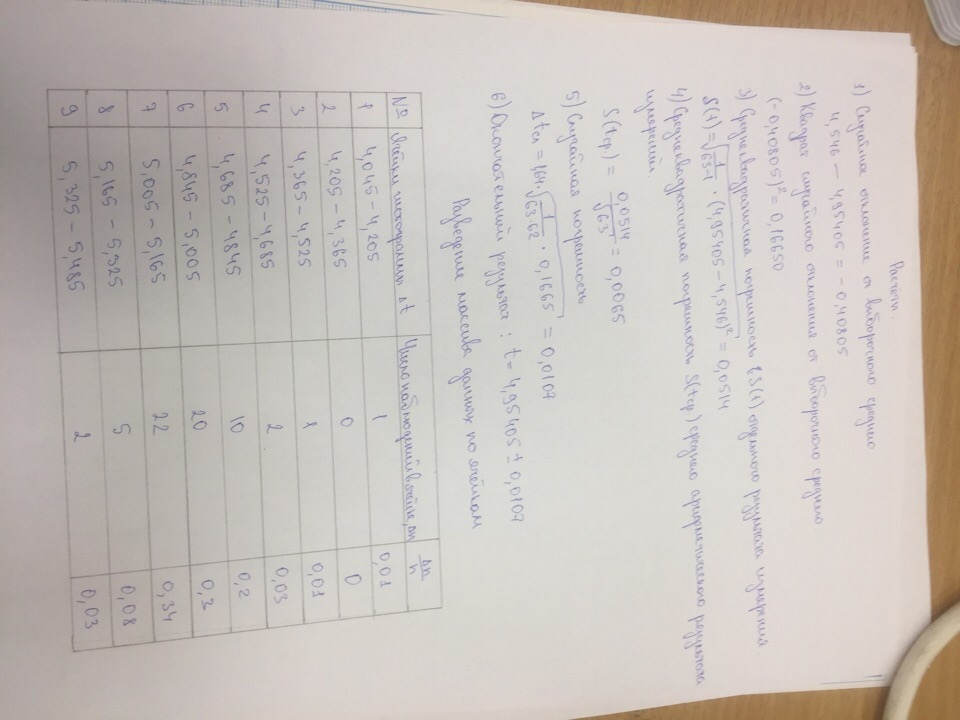 Расчёт.
1) Случайное отклонение от выборочного среднего
4,546 – 4,95405 = -0,40805
2) Квадрат случайного отклонения от выборочного среднего
(-0,40805)² = 0,16650
3) Среднеквадратичная погрешность S(t) отдельного результата измерения
S(t) = √(1/(63-1) · (4,95405 – 4,546)²) = 0,0514
4) Среднеквадратичная погрешность S(tср) среднего арифметического результата
измерений.
S(tср) = 0,0514/√63 = 0,0065
5) Случайная погрешность
Δtсл = 1,64·√(1/(63·62) · 0,1665) = 0,0107
6) Окончательный результат: t = 4,95405 ± 0,0107
Разведение массива данных по ячейкам
№ ячейки гистограммы Δt Число наблюдений в ячейке, Δn Δn/n
1 4,045 – 4,205 1 0,01
2 4,205 – 4,365 0 0
3 4,365 – 4,525 1 0,01
4 4,525 – 4,685 2 0,03
5 4,685 – 4,845 10 0,2
6 4,845 – 5,005 20 0,3
7 5,005 – 5,165 22 0,34
8 5,165 – 5,325 5 0,08
9 5,325 – 5,485 2 0,03